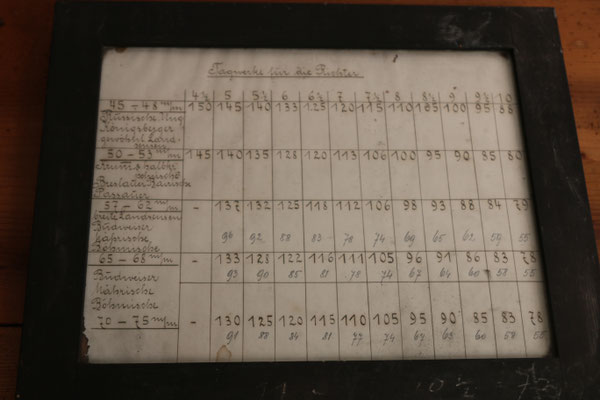 Tagwerke für die Richter
4½ 5 5½ 6 6½ 7 7½ 8 8½ 9 9½ 10
45 – 48 m/m 150 145 140 133 125 120 115 110 105 100 95 88
Russische Ung
Königsberger
gewöhnl. Land-
sensen
50 – 53 m/m 145 140 135 128 120 113 106 100 95 90 85 80
Breslauer Bairische
Passauer
57 – 62 m/m - 137 132 125 118 112 106 98 93 88 84 79
breite Landsensen
Budweiser 94 92 88 83 78 74 69 65 62 59 55
Mährische
Böhmische
65 – 68 m/m - 133 128 122 116 111 105 96 91 86 83 78
Budweiser 93 90 85 81 78 74 67 64 60 58 55
Mährische
Böhmische
70 – 75 m/m - 130 125 120 115 110 105 95 90 85 83 78
91 88 84 81 77 74 67 63 60 58 55